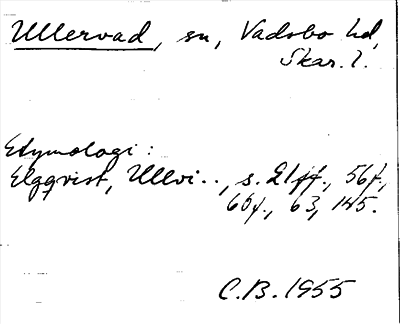 Ullervad, sn, Vadsbo hd,
Skar. l.
Etymologi:
Elgqvist, Ullvi.., s. 21ff., 56f.,
60f., 63, 145.
C.B. 1955